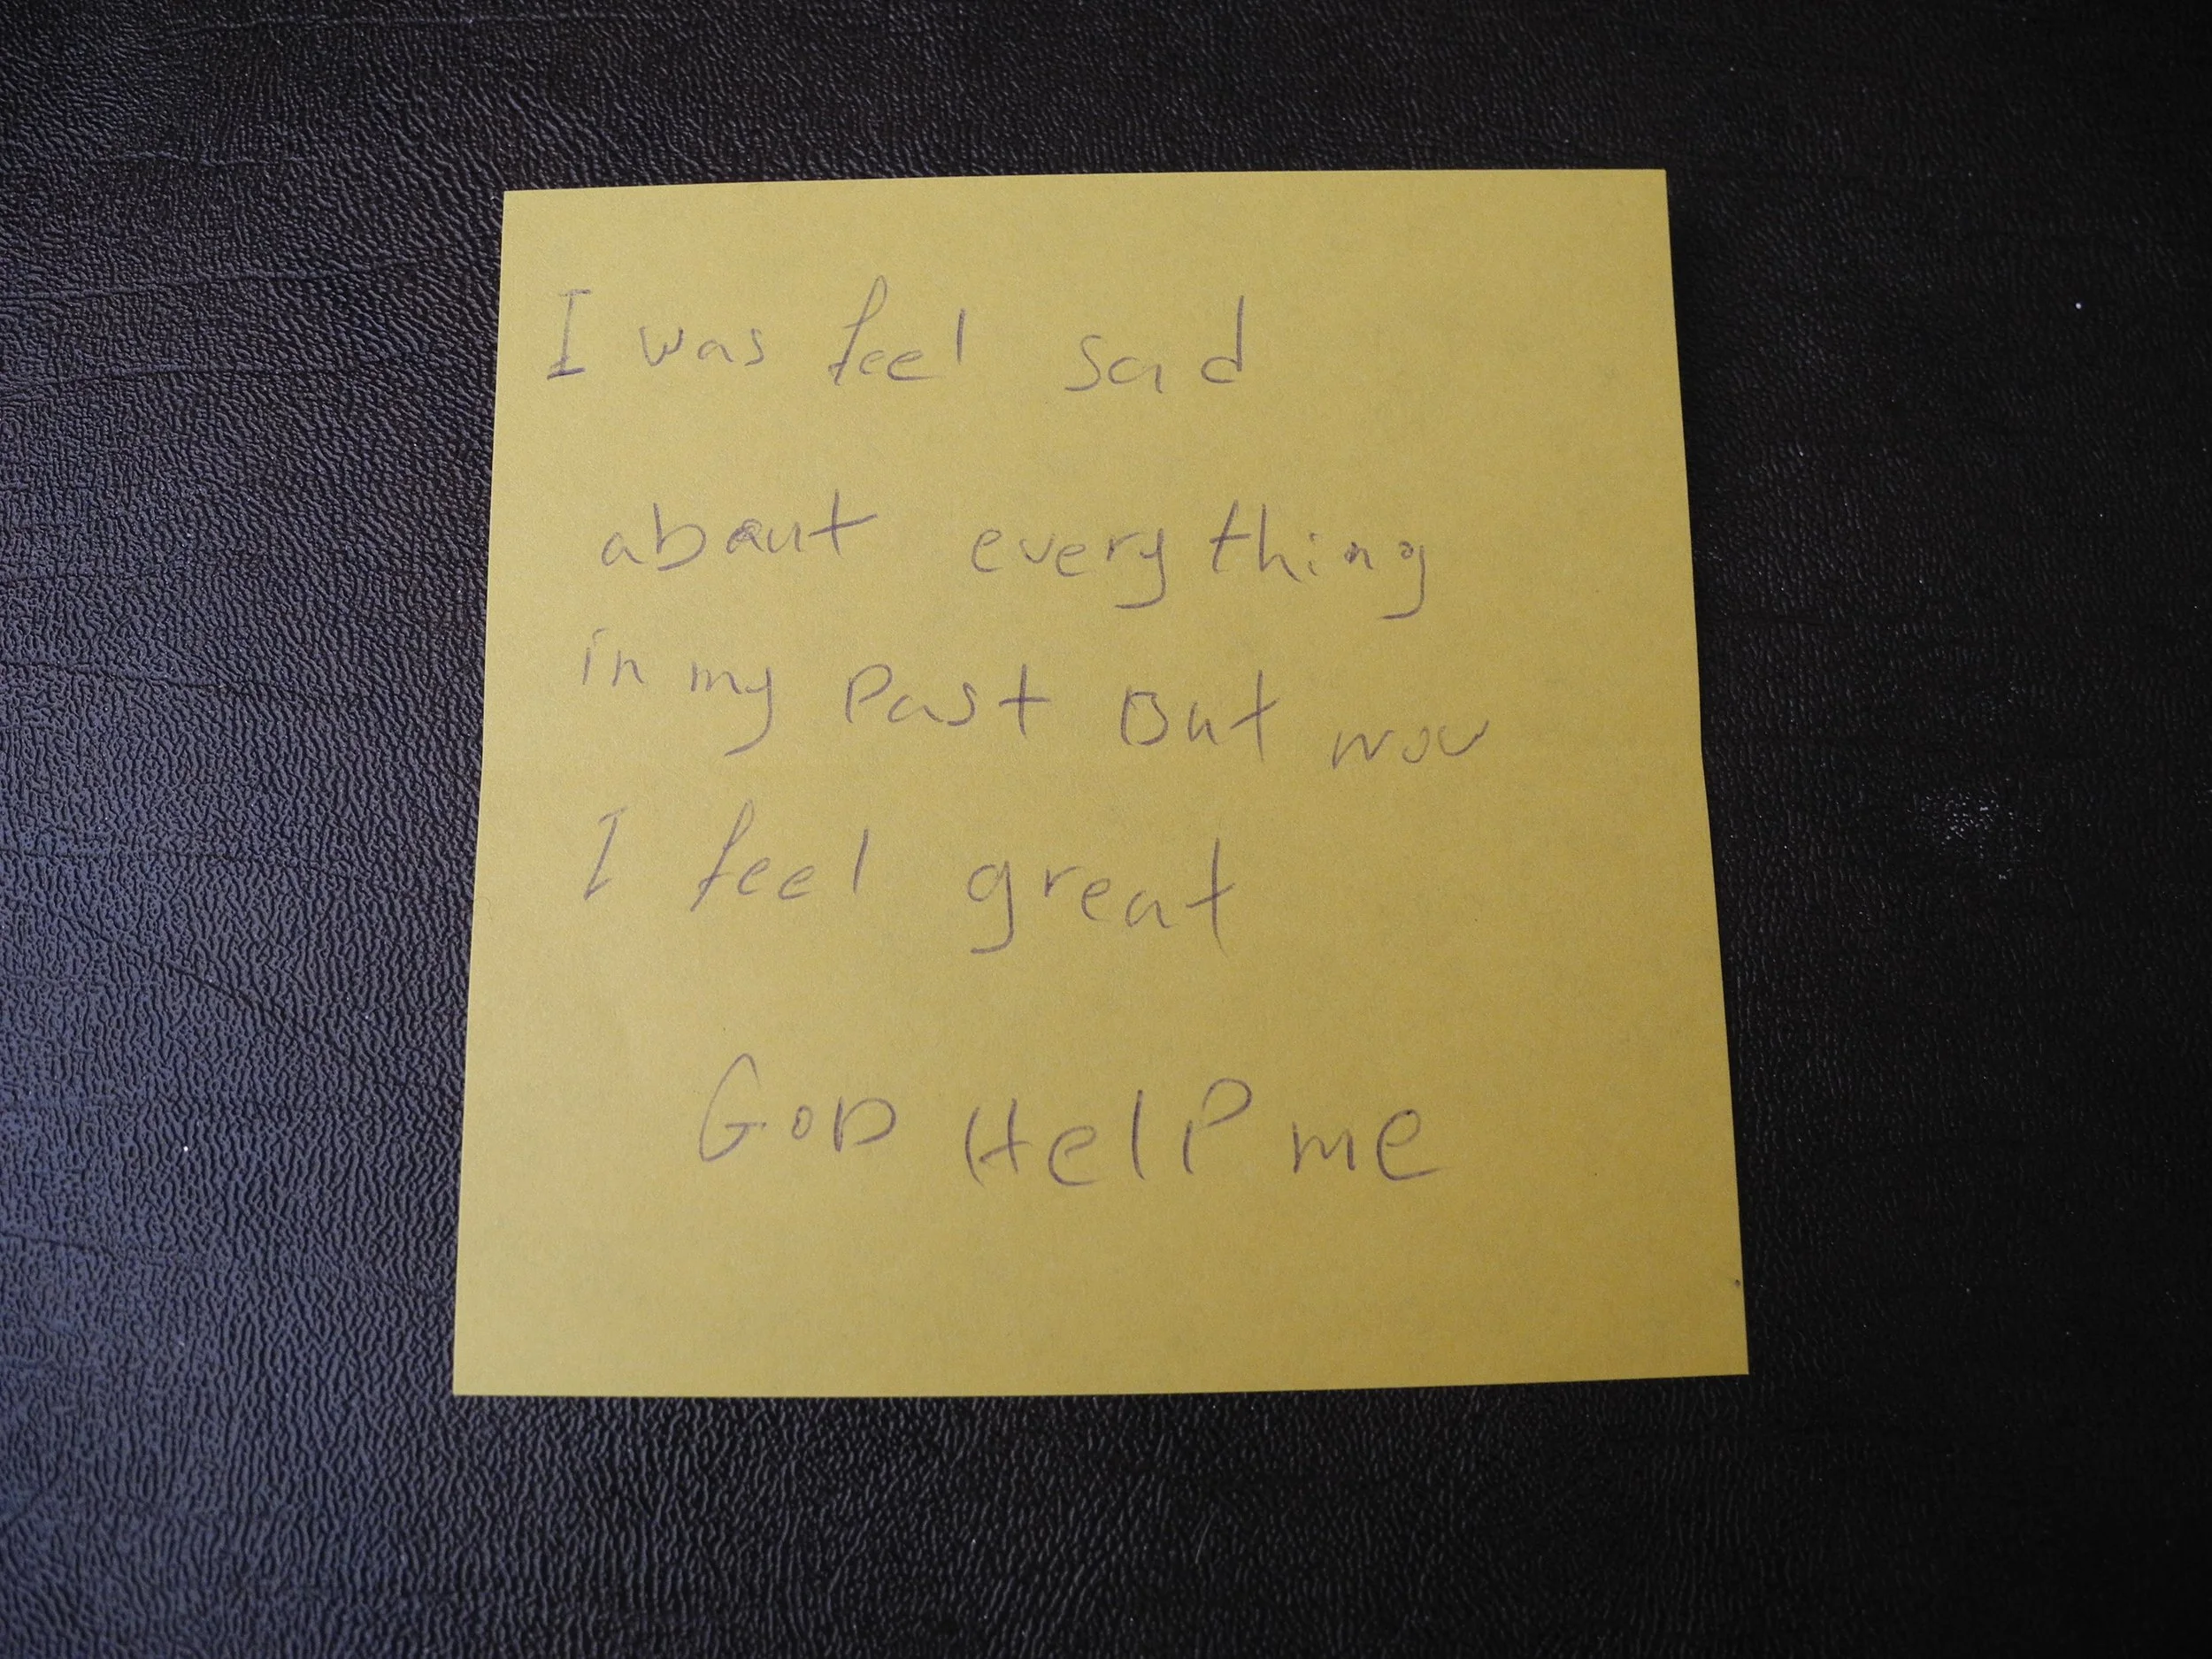 I was feel sad
about everything
in my Past But now
I feel great
GOD HelP me